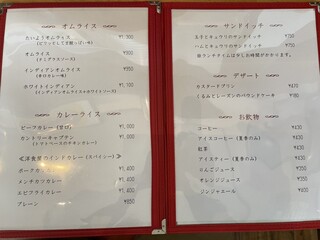 オムライス
たいようオムライス ¥1,300
オムライス ¥900
(デミグラスソース)
インディアンオムライス ¥950
(辛口カレー味)
ホワイトインディアン ¥1,100
(インディアンオムライス+ホワイトソース)
カレーライス
ビーフカレー (甘口) ¥1,000
カントリーキャプテン ¥1,000
(トマトベースのチキンカレー)
≪洋食屋のインドカレー (スパイシー)≫
ポークカレー
メンチカツカレー
エビフライカレー
プレーン ¥850
サンドイッチ
玉子とキュウリのサンドイッチ ¥750
ハムとキュウリのサンドイッチ ¥750
※ランチタイムは少しお時間がかかります。
デザート
カスタードプリン
くるみとレーズンのパウンドケーキ
お飲物
コーヒー ¥430
アイスコーヒー (夏季のみ) ¥430
紅茶 ¥430
アイスティー (夏季のみ) ¥430
りんごジュース ¥350
オレンジジュース ¥350
ジンジャエール